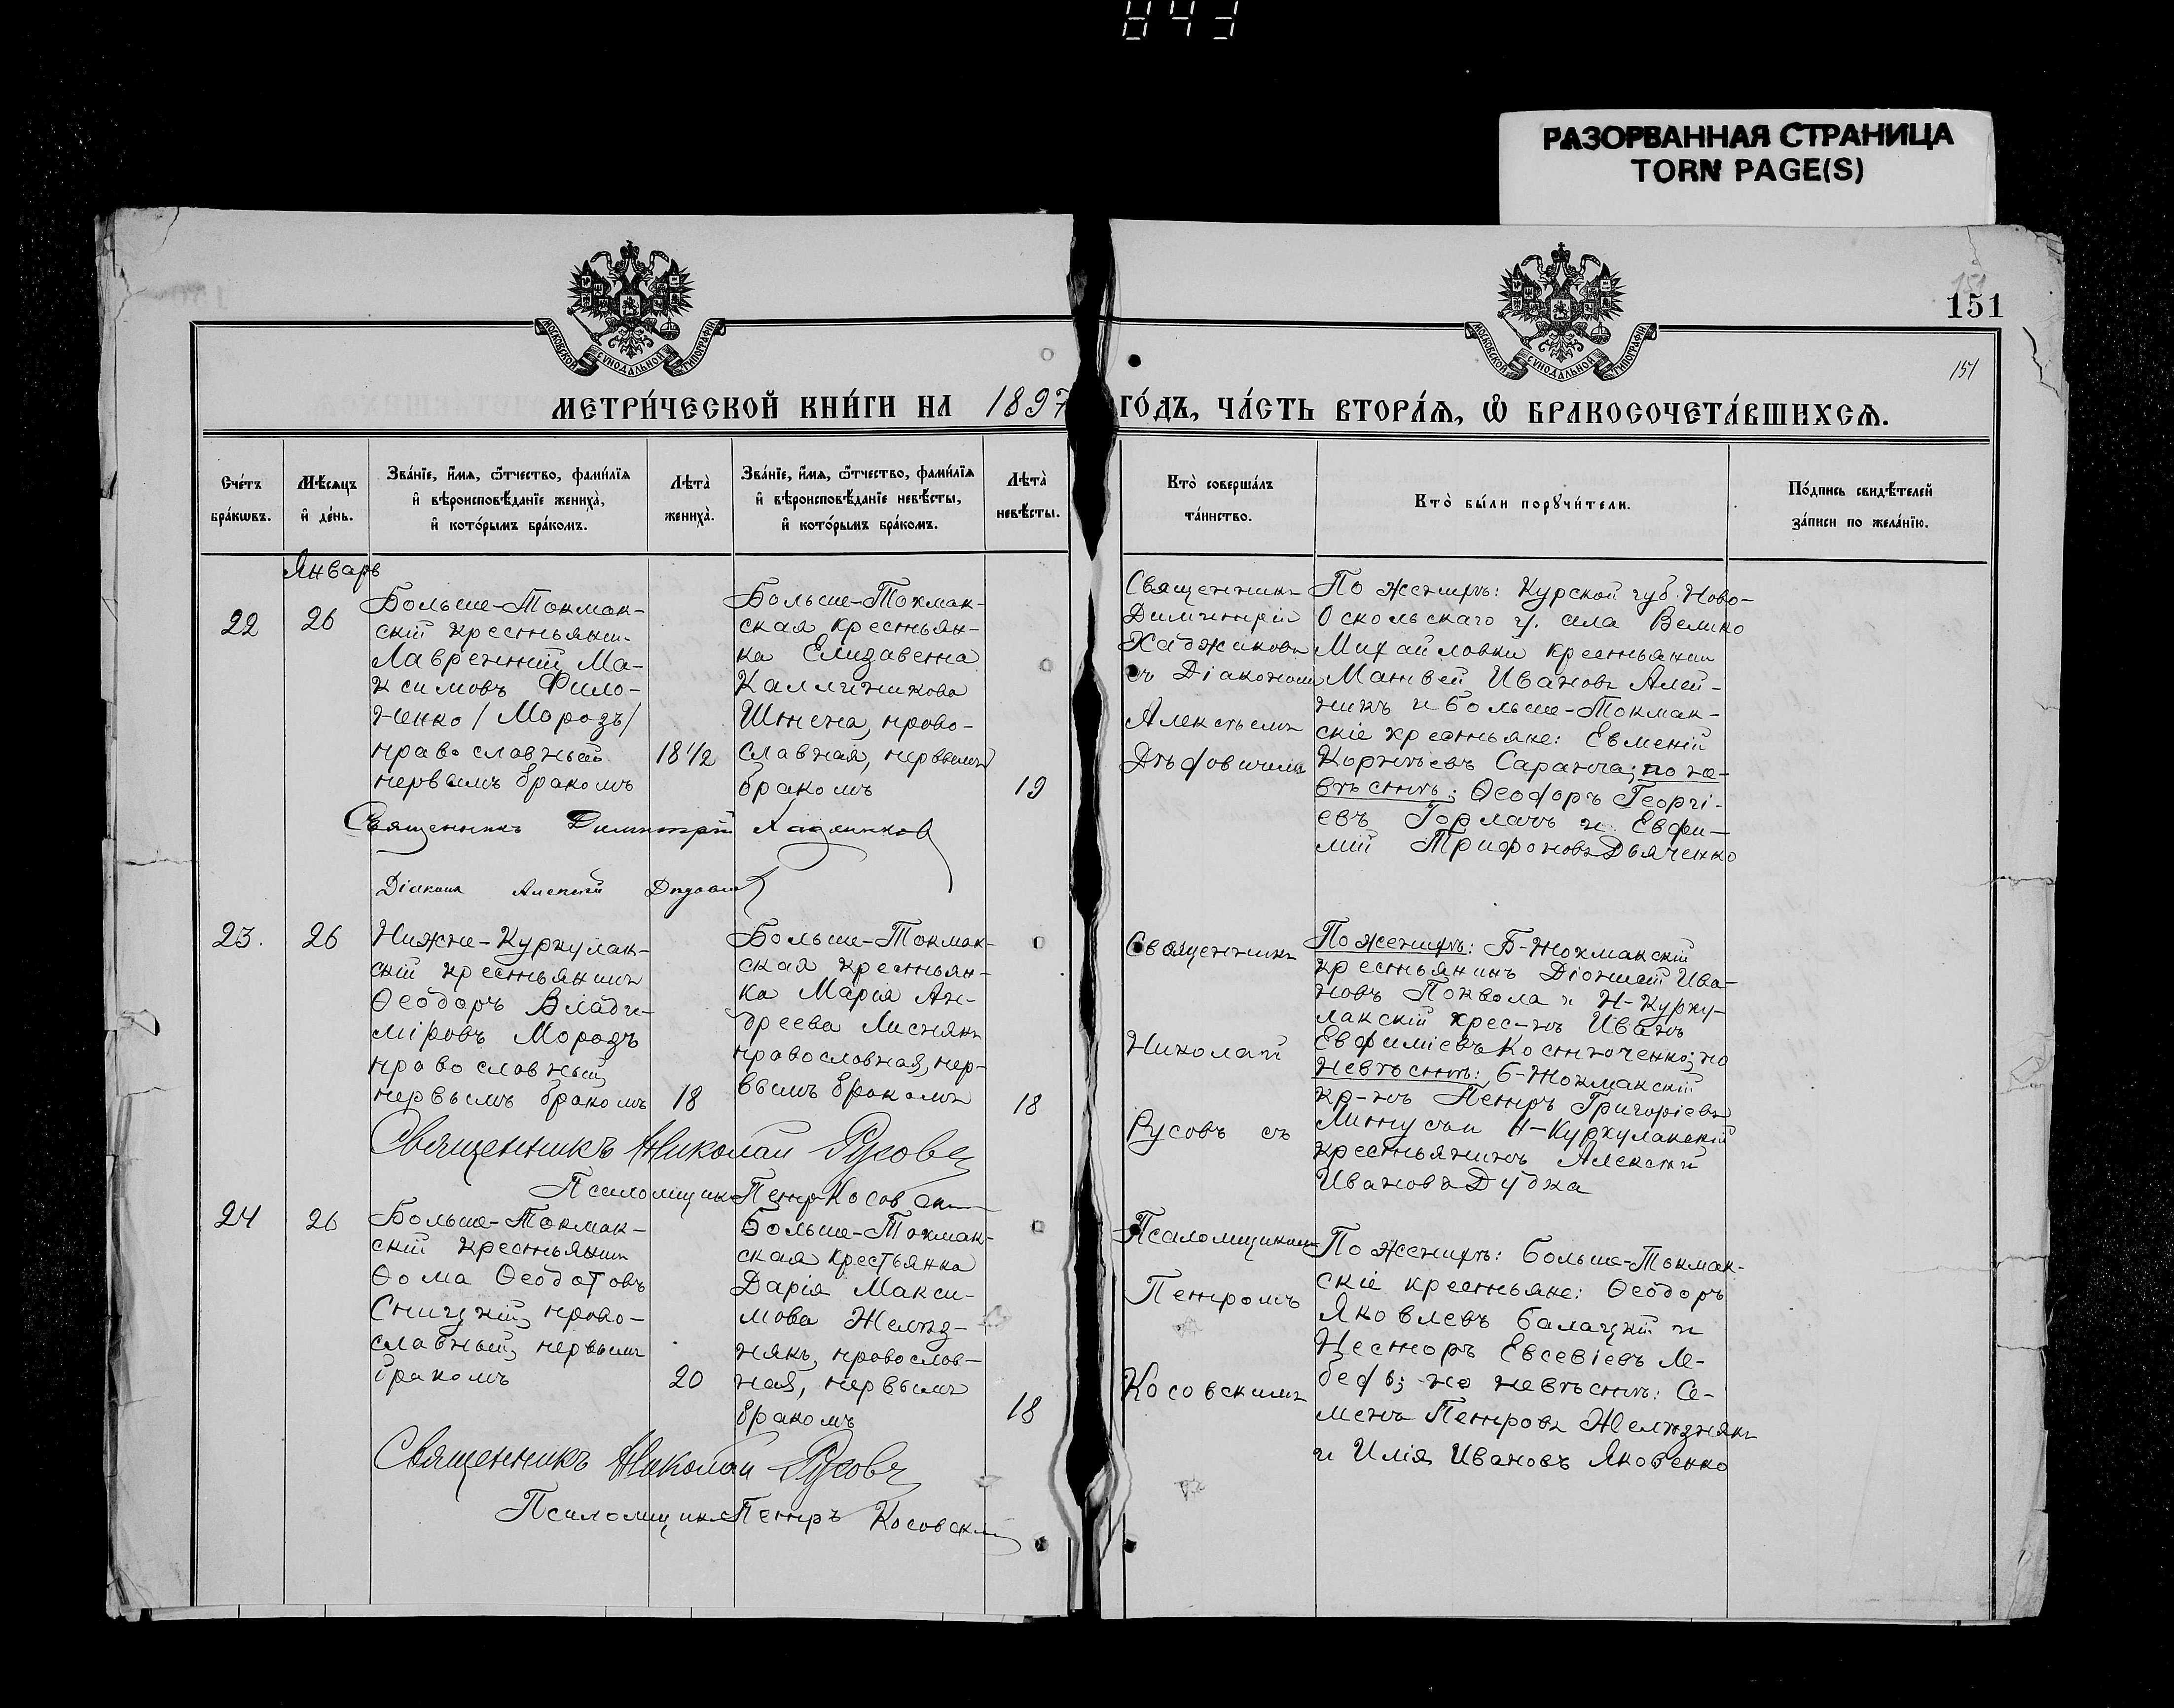 843
РАЗОРВАННАЯ СТРАНИЦА
TORN PAGE(S)
МОСКОВСКОЙ СѴНОДАЛЬНОЙ ТИПОГРАФІИ
МОСКОВСКОЙ СѴНОДАЛЬНОЙ ТИПОГРАФІИ
151
151
МЕТРИ́ЧЕСКОЙ КНИ́ГИ НА 1897 ГО́ДЪ, ЧА́СТЬ ВТОРА́Ѧ, Ѽ БРАКОСОЧЕТА́ВШИХСѦ.
Сче́тъ
бра́кѡвъ.
Мѣ́сяцъ
и҆ де́нь.
Зва́нїе, и҆́мѧ, ѻ҆́тчество, фами́лїѧ
и҆ вѣроисповѣ́данїе жениха̀,
и҆ кото́рымъ бра́комъ.
Лѣта̀
жениха̀.
Зва́нїе, и҆́мѧ, ѻ҆́тчество, фами́лїѧ
и҆ вѣроисповѣ́данїе невѣ́сты,
и҆ кото́рымъ бра́комъ.
Лѣта̀
невѣ́сты.
Кто̀ соверша́лъ
та́инство.
Кто̀ бы́ли порꙋчи́тели.
По́дпись свидѣ́телей
за́писи по жела́нїю.
Январь
22
26
Больше-Токмак-
скій крестьянинъ
Лаврентій Ма-
ксимовъ Фило-
ненко /Морозъ/
православный
первымъ бракомъ
18½
Больше-Токмак-
ская крестьян-
ка Елизавета
Каллиникова
Штепа, право-
славная, первымъ
бракомъ
19
Священникъ
Димитрій
Хаджиновъ
съ Діакономъ
Алексѣемъ
По женихѣ: Курской губ. Ново-
Оскольскаго у. села Велико
Михайловки крестьянинъ
Матвей Ивановъ Алей-
никъ и больше-Токмак-
скіе крестьяне: Евменій
Корнѣевъ Саранча; по не-
вѣстѣ: Ѳеодоръ Георгі-
евъ Горлачъ и Евфи-
мій Трифоновъ Дьяченко
Священникъ Димитрій Хаджиновъ
Діаконъ Алексѣй
23.
26
Нижне-Куркулак-
скій крестьянинъ
Ѳеодоръ Влади-
міровъ Морозъ
православный,
первымъ бракомъ
18
Больше-Токмак-
ская крестьян-
ка Марія Ан-
дреева Лиснякъ
православная, пер-
вымъ бракомъ
18
Священникъ
Николай
Русовъ съ
По женихѣ: Б-Токмакскій
крестьянинъ Діонисій Ива-
новъ Поквола и Н-Курку-
лакскій крес-нъ Иванъ
Евфиміевъ Костюченко; по
невѣстѣ: Б-Токмакскій
кр-нъ Петръ Григоріевъ
Н-Куркулакскій
крестьянинъ Алексѣй
Ивановъ Дудка
Священникъ Николай Русовъ
Псаломщикъ Петръ Косовскій
24
26
Больше-Токмак-
скій крестьянинъ
Ѳома Ѳеодотовъ
Сницкій, право-
славный, первымъ
бракомъ
20
Больше-Токмак-
ская крестьянка
Дарія Макси-
мова Желѣз-
някъ, православ-
ная, первымъ
бракомъ
18
Псаломщикомъ
Петромъ
Косовскимъ
По женихѣ: Больше-Токмак-
скіе крестьяне: Ѳеодоръ
Яковлевъ Балацкій и
Несторъ Евсевіевъ Ле-
бедь; по невѣстѣ: Се-
менъ Петровъ Желѣзнякъ
и Илія Ивановъ Яковенко
Священникъ Николай Русовъ
Псаломщикъ Петръ Косовскій